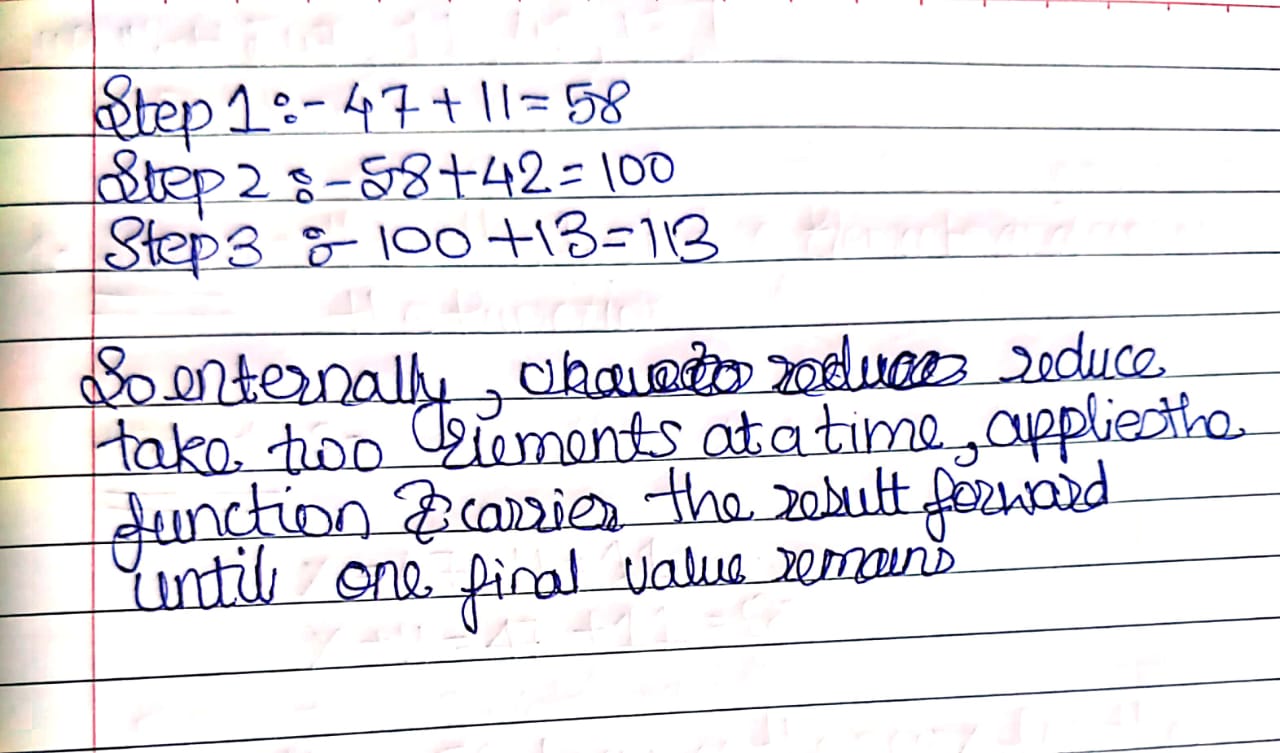 Step 1 :- 47 + 11 = 58
Step 2 :- 58 + 42 = 100
Step 3 :- 100 + 13 = 113
So enternally, reduce
take two elements at a time, applies the
function & carries the result forward
until one final value remains